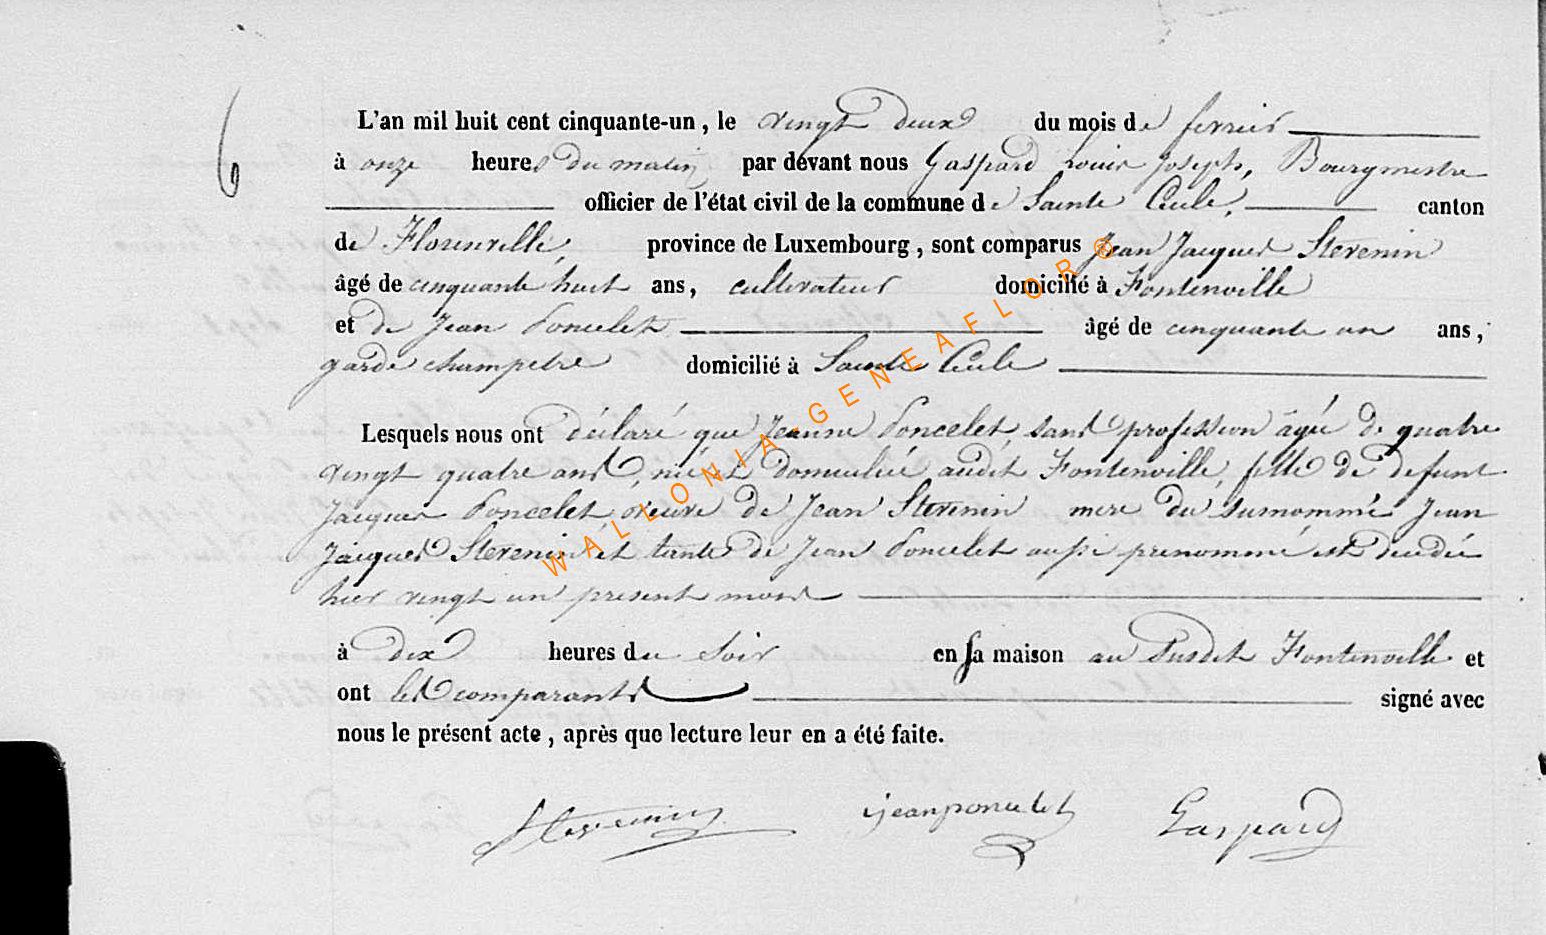 6
L'an mil huit cent cinquante-un, le vingt deux du mois de fevrier
à onze heures du matin par devant nous Gaspard Louis Joseph, Bourgmestre
officier de l'état civil de la commune de Sainte Cécile, canton
de Florenville, province de Luxembourg, sont comparus Jean Jacques Stevenin
âgé de cinquante huit ans, cultivateur domicilié à Fontenoille
et de Jean Poncelet âgé de cinquante un ans,
garde champetre domicilié à Sainte Cecile
Lesquels nous ont déclaré que Jeanne Poncelet, sans profession âgée de quatre
vingt quatre ans, née et domiciliée audit Fontenoille, fille de defunt
Jacques Poncelet, veuve de Jean Stevenin mere du surnommé Jean
Jacques Stevenin et tante de Jean Poncelet aussi prenommé est decedée
hier vingt un present mois
à dix heures du soir en sa maison au susdit Fontenoille et
ont les comparants signé avec
nous le présent acte, après que lecture leur en a été faite.
Stevenin jean poncelet Gaspard
WALLONIA-GENEAFLOR®